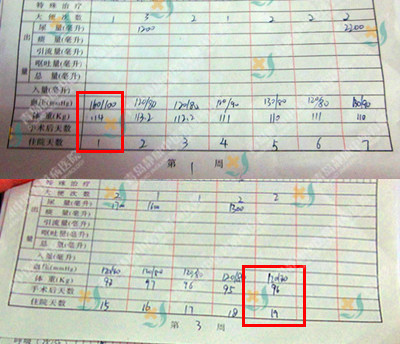 特殊治疗
大便次数 1 3 2 1 2 2 2
尿量(毫升) 1200 2200
痰量(毫升)
引流量(毫升)
呕吐量(毫升)
总量(毫升)
出量
入量(毫升)
血压(mmHg) 160/100 120/80 120/80 120/80 120/80
体重(Kg) 114 113.2 112.2 111 110 111 110
手术后天数
住院天数 1 2 3 4 5 6 7
第 1 周
特殊治疗
大便次数 2 1 1 2 2
尿量(毫升) 1600 1300
痰量(毫升)
引流量(毫升)
呕吐量(毫升)
总量(毫升)
出量
入量(毫升)
血压(mmHg) 120/80 120/80 120/80 120/80
体重(Kg) 98 97 96 95 96
手术后天数
住院天数 15 16 17 18 19
第 3 周